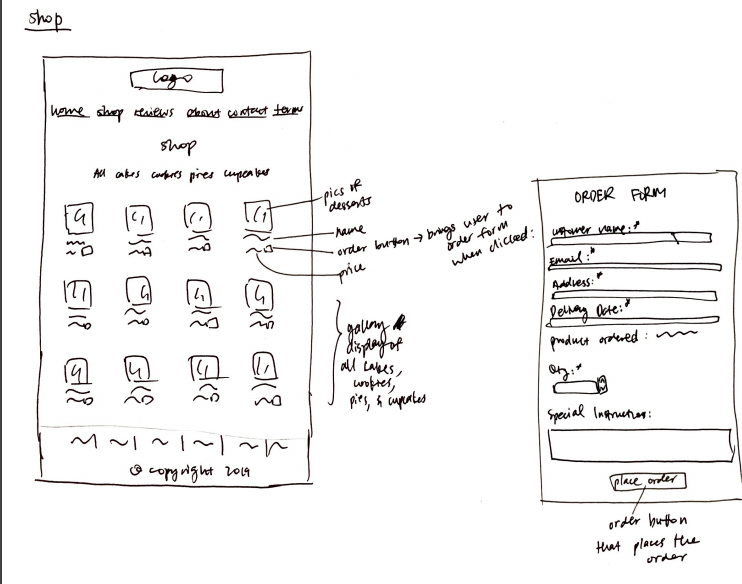 shop
Logo
home shop reviews about contact terms
shop
All cakes cookies pies cupcakes
pics of
desserts
name
order button → brings user to
order form
when clicked:
price
gallery
display of
all cakes,
cookies,
pies, & cupcakes
© copyright 2019
ORDER FORM
customer name:*
Email:*
Address:*
Delivery Date:*
product ordered:
Qty:*
Special Instructions:
place order
order button
that places the
order